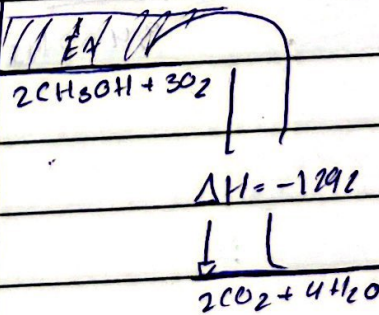 EA
2CH3OH + 3O2
ΔH = -1292
2CO2 + 4H2O